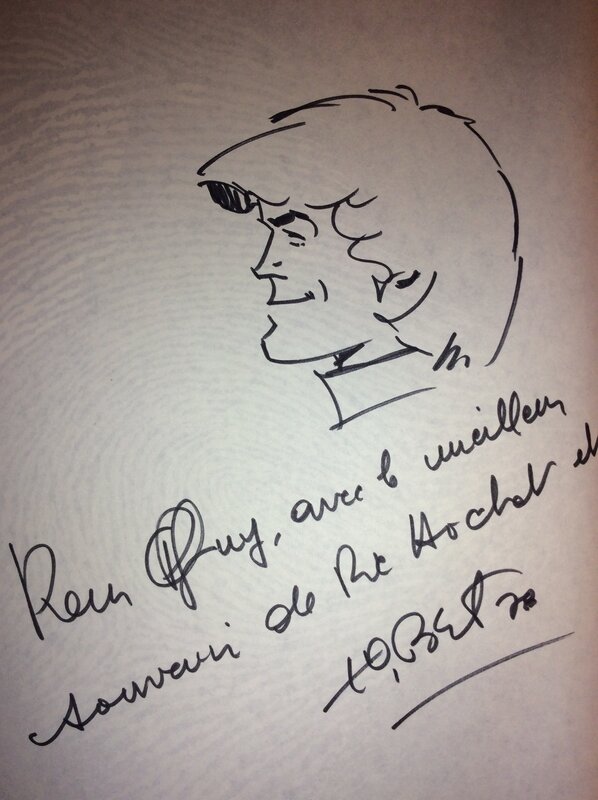 Pour Guy, avec le meilleur
souvenir de Ric Hochet et